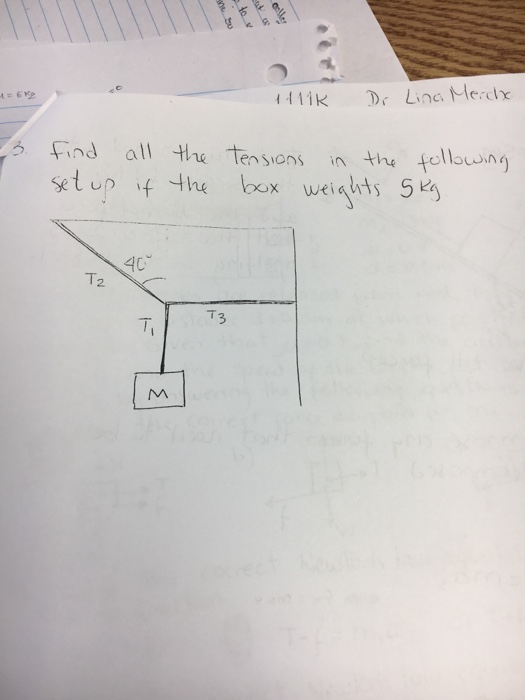 1111K Dr Lina Merchx
3. Find all the Tensions in the following
set up if the box weights 5 Kg
40°
T2
T1
T3
M